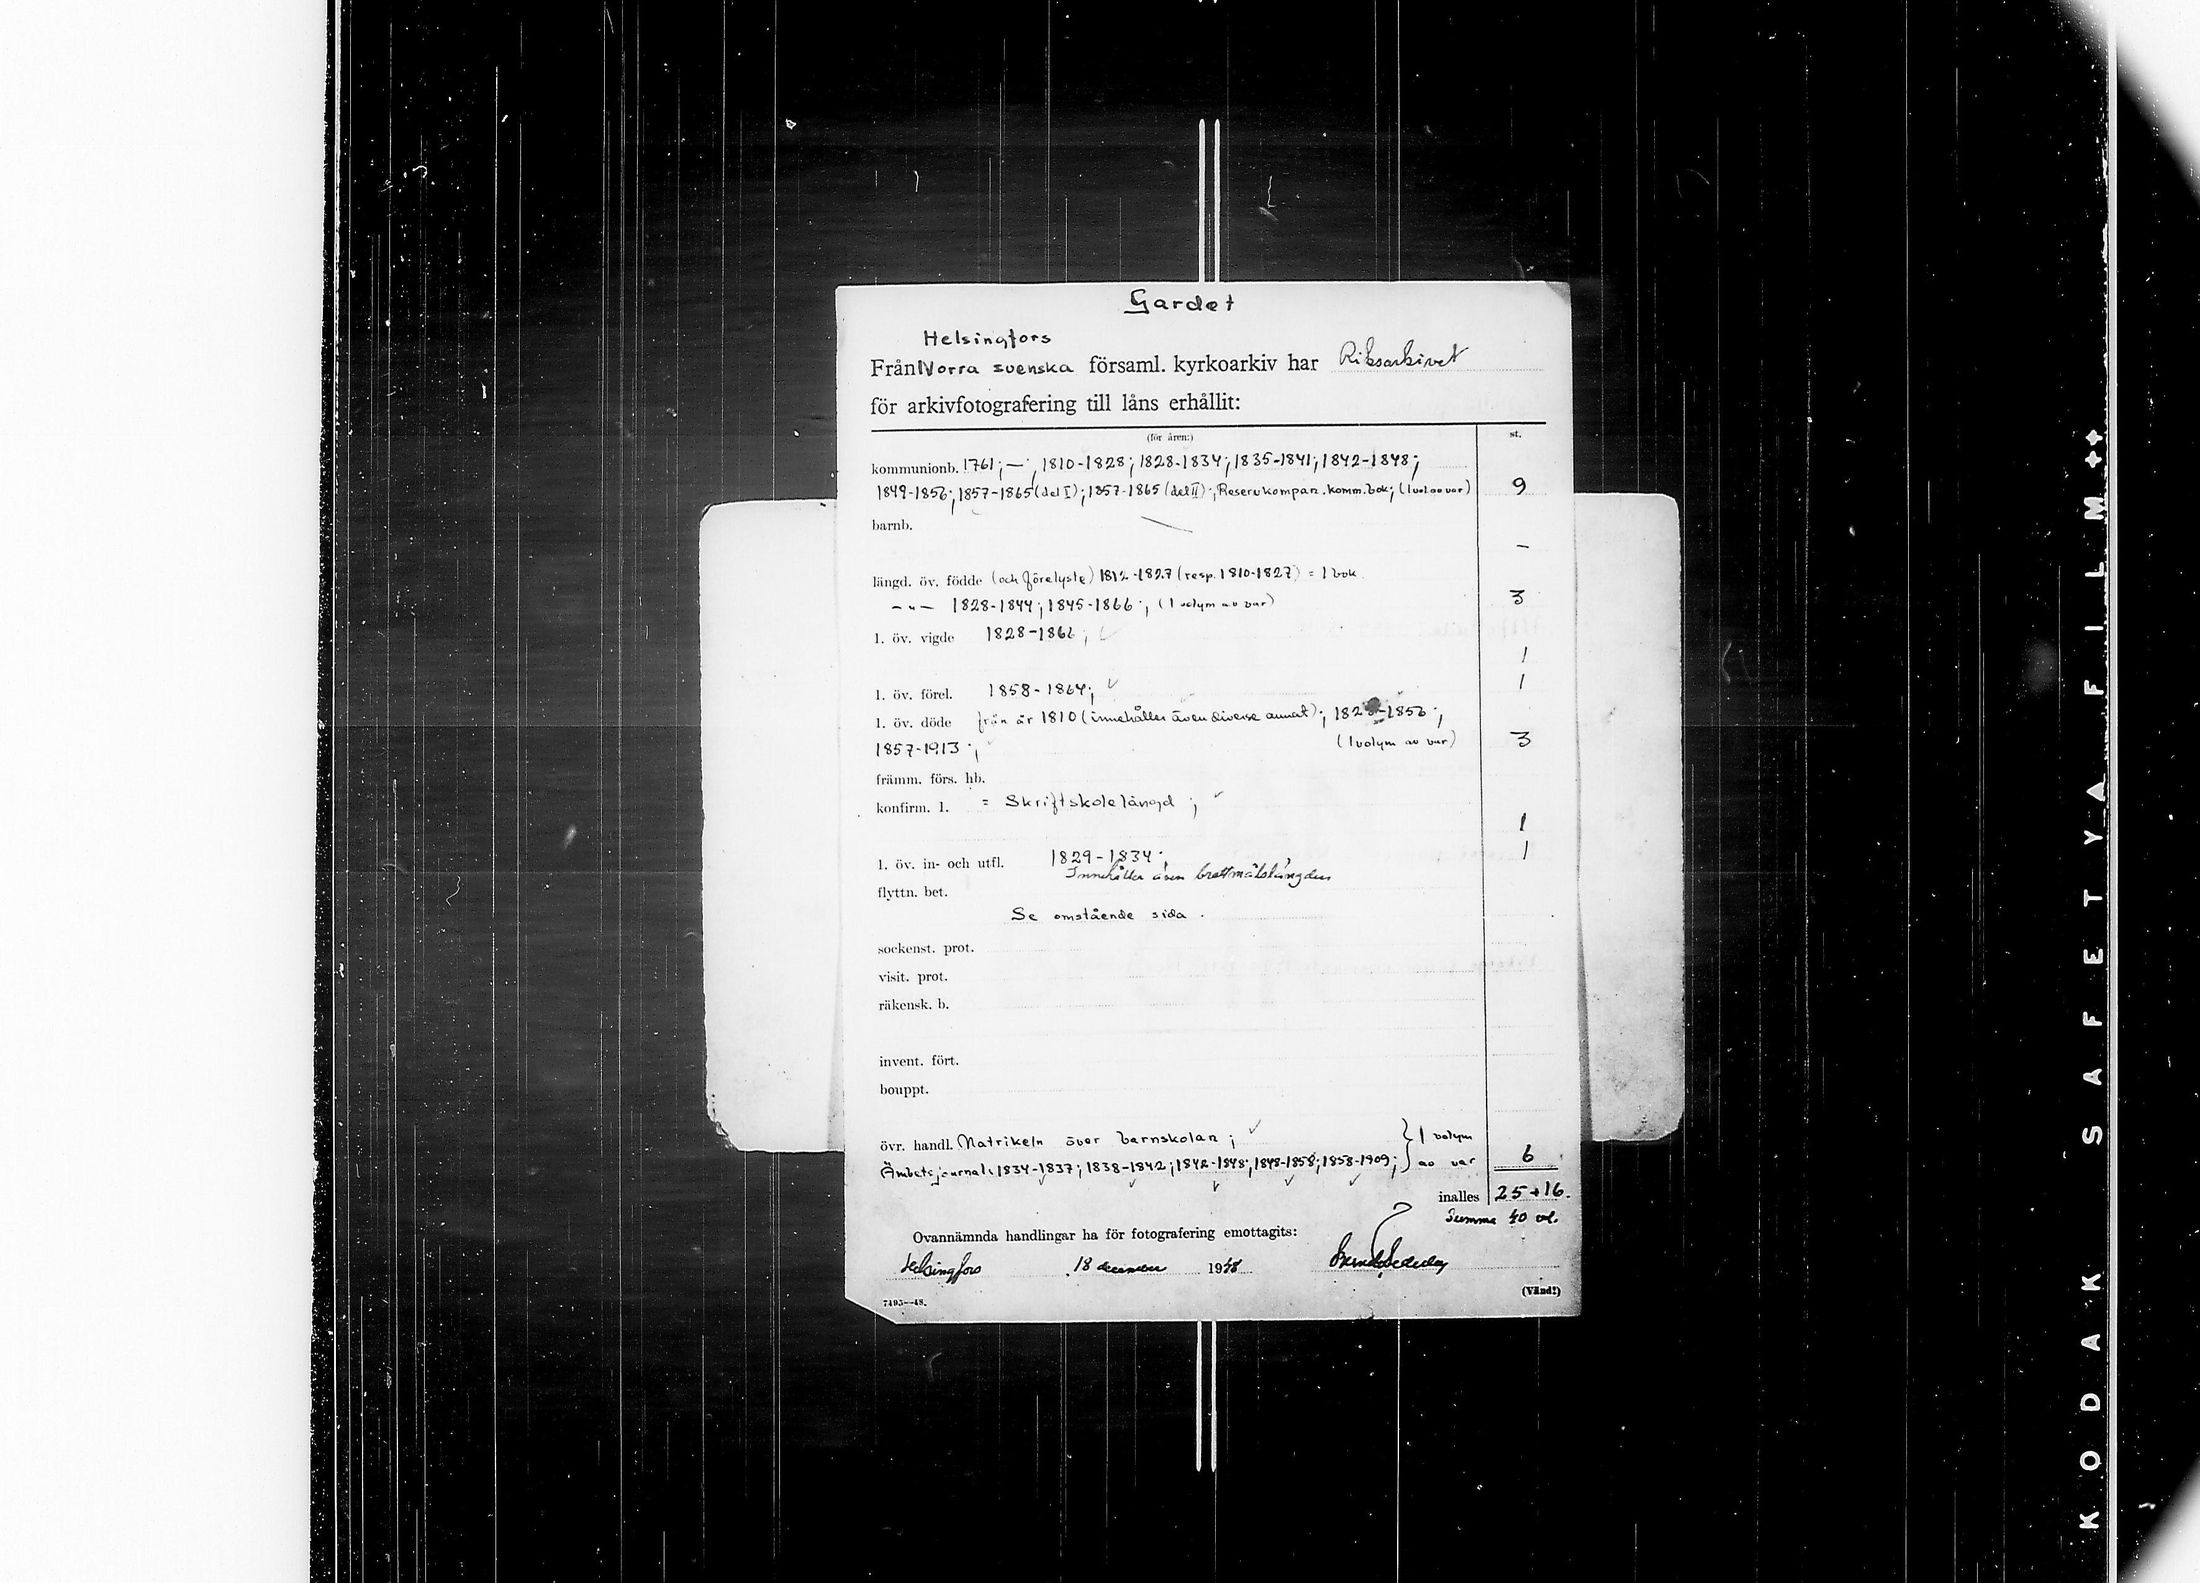 Gardet
Helsingfors
Från Norra svenska församl. kyrkoarkiv har Riksarkivet
för arkivfotografering till låns erhållit:
(för åren:) st.
kommunionb. 1761; — ; 1810-1828; 1828-1834; 1835-1841; 1842-1848;
1849-1856; 1857-1865 (del I); 1857-1865 (del II); Reservkompan. komm. bok; (1 vol av var) 9
barnb. —
längd. öv. födde (och förelyste) 1812-1827 (resp. 1810-1827) = 1 bok
— „ — 1828-1844; 1845-1866; (1 volym av var) 3
l. öv. vigde 1828-1866; 1
l. öv. förel. 1858-1864; 1
l. öv. döde från år 1810 (innehåller även diverse annat); -1856;
1857-1913; (1 volym av var) 3
främm. förs. hb.
konfirm. l. = Skriftskolelängd; 1
l. öv. in- och utfl. 1829-1834; 1
Innehåller även brottmålslängden
flyttn. bet.
Se omstående sida.
sockenst. prot.
visit. prot.
räkensk. b.
invent. fört.
bouppt.
övr. handl. Matrikeln över barnskolan; } 1 volym
Ämbetsjournal: 1834-1837; 1838-1842; 1842-1848; 1848-1858; 1858-1909; av var 6
inalles 25+16.
Summa 40 vol.
Ovannämnda handlingar ha för fotografering emottagits:
Helsingfors 18 december 1948
7495—48. (Vänd!)
KODAK SAFETY A FILM ++